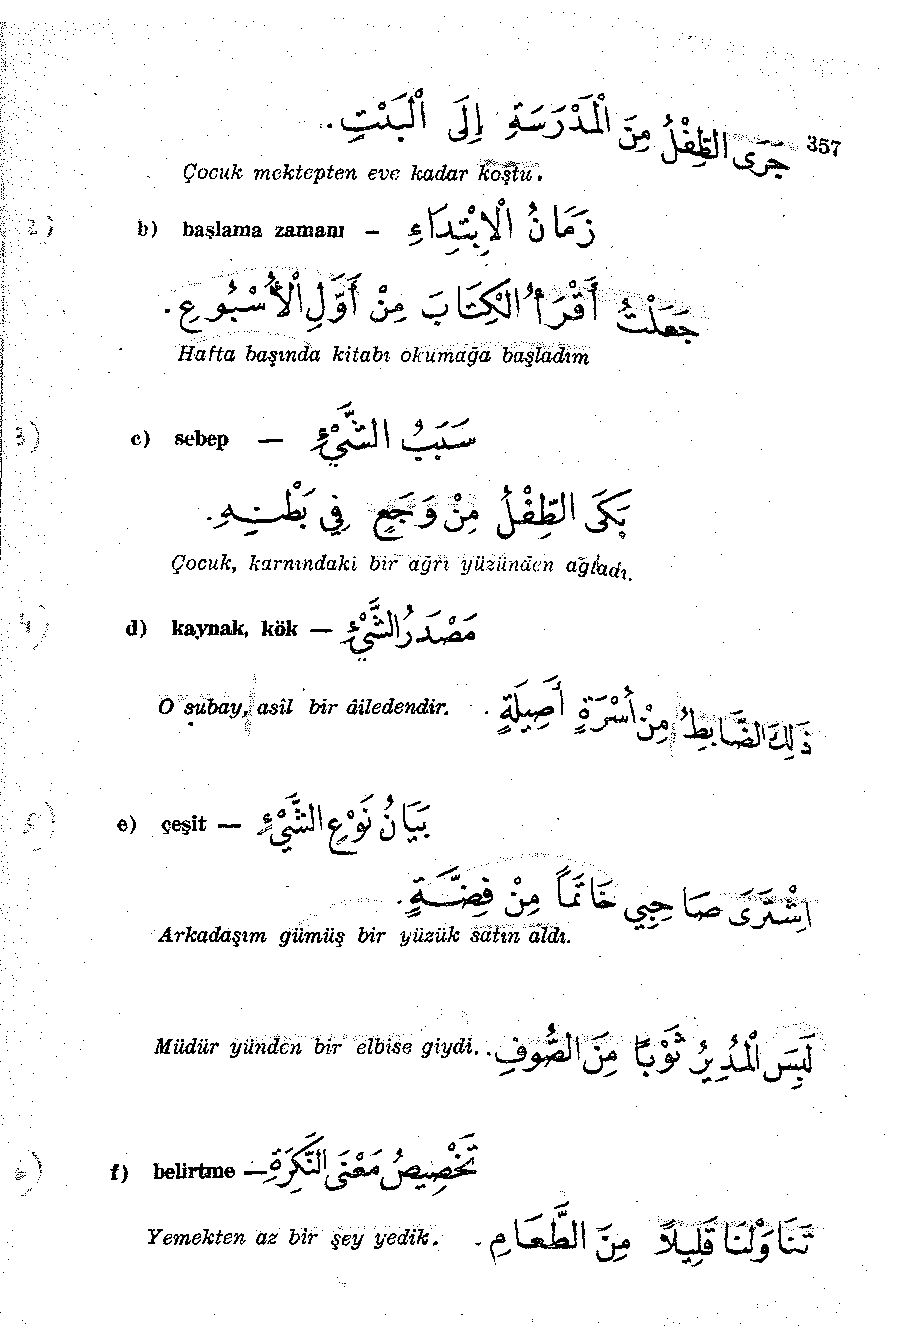 357
جَرَى الطِّفْلُ مِنَ الْمَدْرَسَةِ إِلَى الْبَيْتِ.
Çocuk mektepten eve kadar koştu.
2)
b) başlama zamanı – زَمَانُ الْاِبْتِدَاءِ
جَعَلْتُ أَقْرَأُ الْكِتَابَ مِنْ أَوَّلِ الْأُسْبُوعِ.
Hafta başında kitabı okumağa başladım
3)
c) sebep — سَبَبُ الشَّيْءِ
بَكَى الطِّفْلُ مِنْ وَجَعٍ فِي بَطْنِهِ.
Çocuk, karnındaki bir ağrı yüzünden ağladı.
4)
d) kaynak, kök — مَصْدَرُ الشَّيْءِ
ذَلِكَ الضَّابِطُ مِنْ أُسْرَةٍ أَصِيلَةٍ.
O subay, asil bir âiledendir.
5)
e) çeşit — بَيَانُ نَوْعِ الشَّيْءِ
اِشْتَرَى صَاحِبِي خَاتَمًا مِنْ فِضَّةٍ.
Arkadaşım gümüş bir yüzük satın aldı.
لَبِسَ الْمُدِيرُ ثَوْبًا مِنَ الصُّوفِ.
Müdür yünden bir elbise giydi.
6)
f) belirtme — تَخْصِيصُ مَعْنَى النَّكِرَةِ
تَنَاوَلْنَا قَلِيلاً مِنَ الطَّعَامِ.
Yemekten az bir şey yedik.